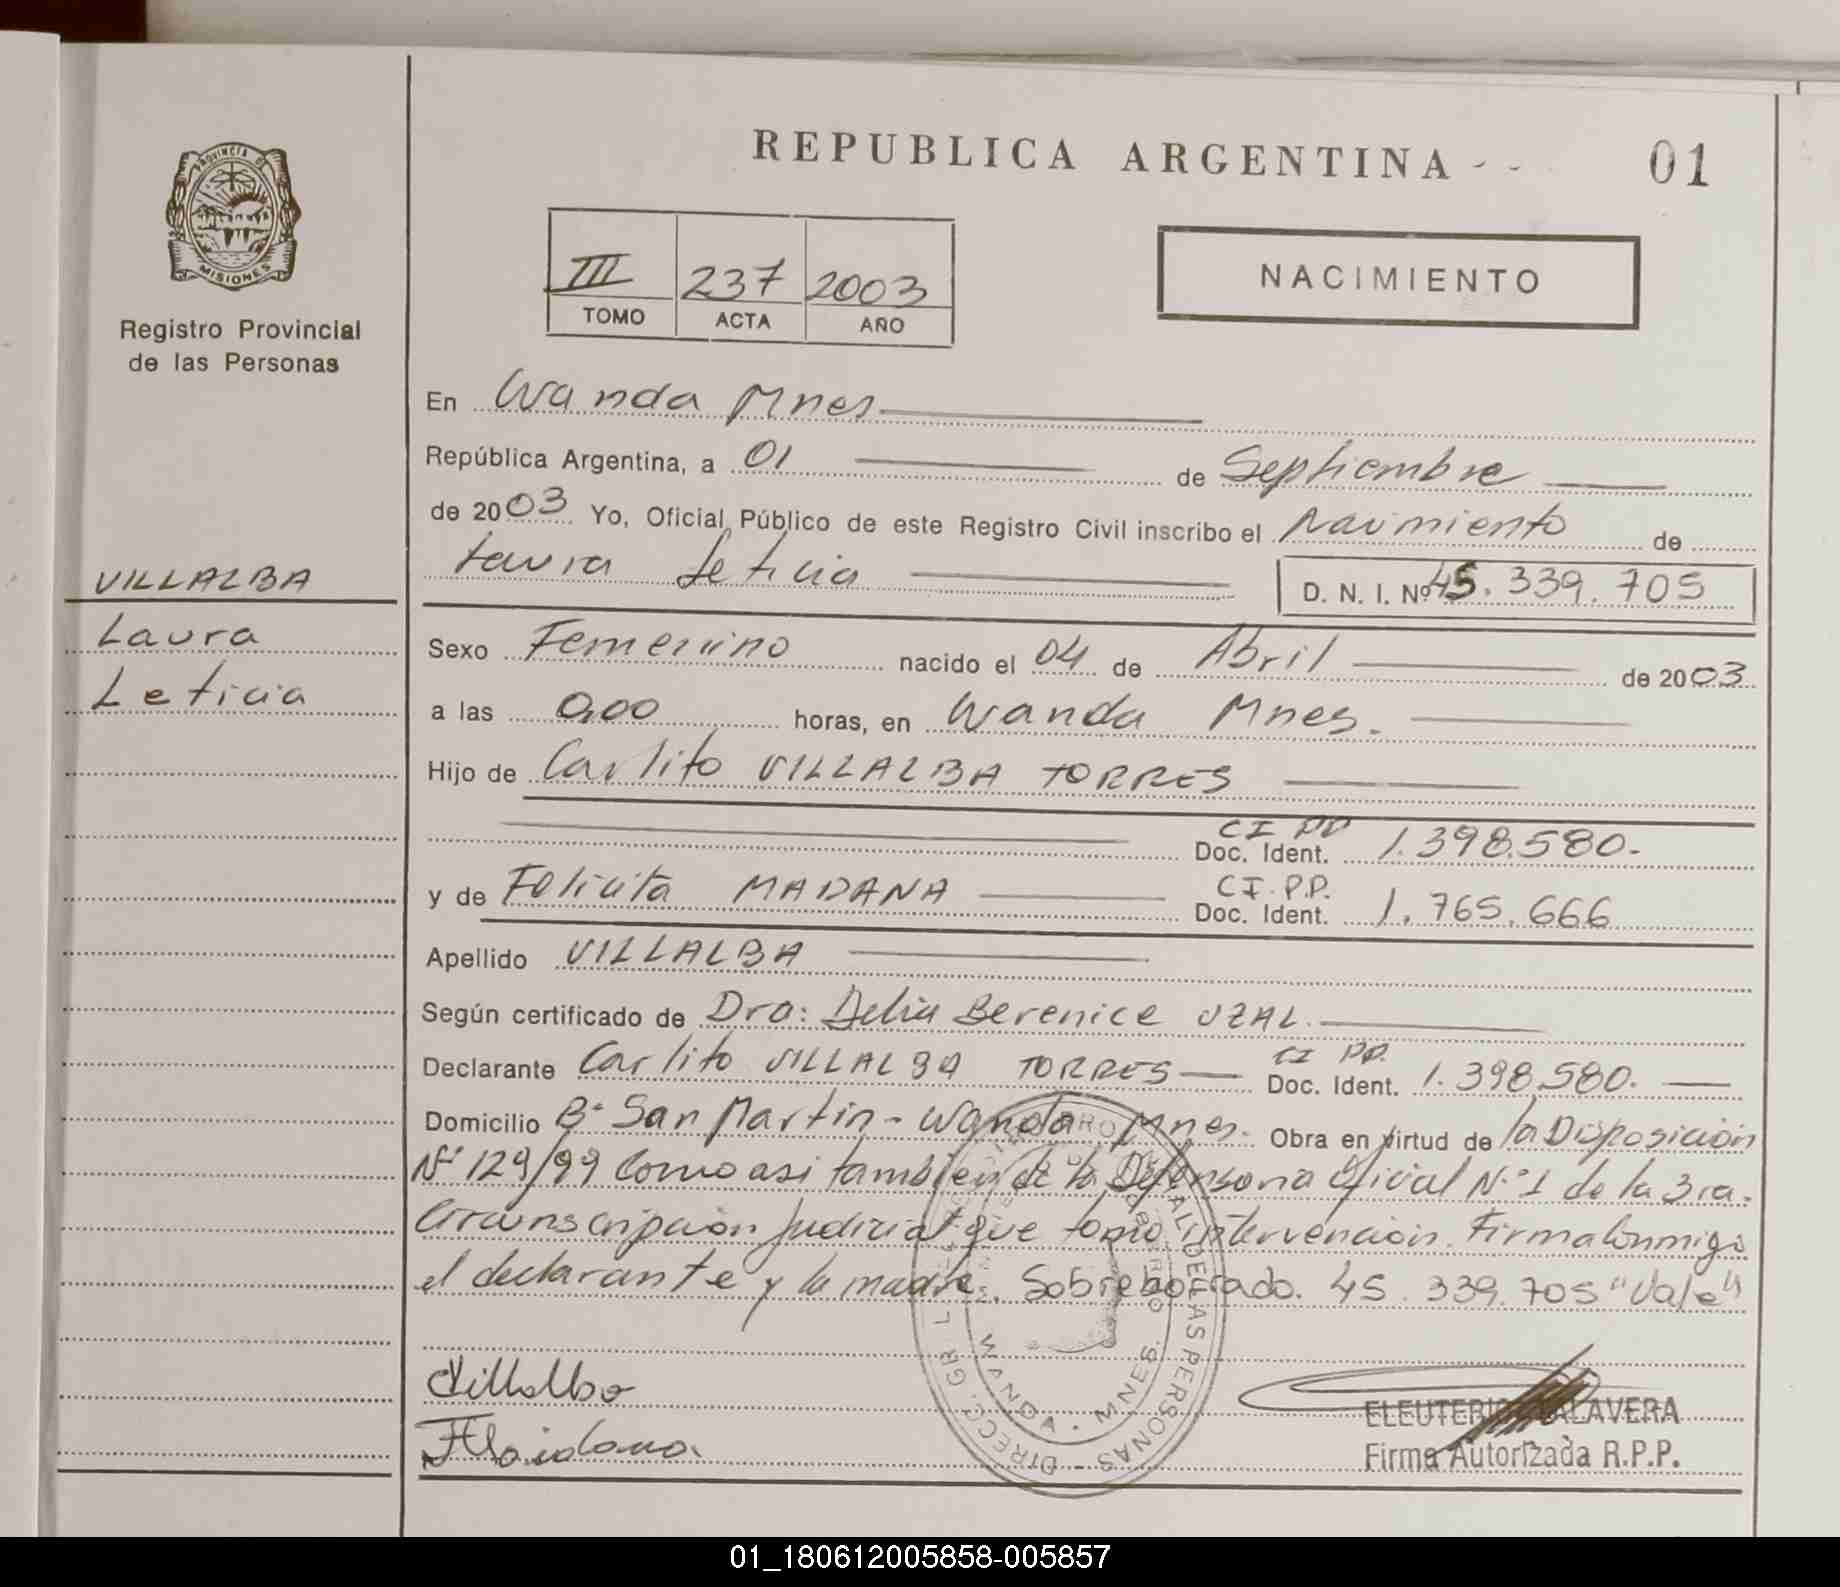 REPUBLICA ARGENTINA - -
01
PROVINCIA DE
MISIONES
Registro Provincial
de las Personas
III 237 2003
TOMO ACTA AÑO
NACIMIENTO
En Wanda Mnes
República Argentina, a 01 de Septiembre
de 2003 Yo, Oficial Público de este Registro Civil inscribo el Nacimiento de
Laura Leticia D. N. I. Nº 45.339.705
VILLALBA
Laura
Leticia
Sexo Femenino nacido el 04 de Abril de 2003
a las 0,00 horas, en Wanda Mnes.
Hijo de Carlito VILLALBA TORRES
CI PP
Doc. Ident. 1.398.580.-
CI. P.P.
y de Felicita MADANA Doc. Ident. 1.765.666
Apellido VILLALBA
Según certificado de Dra: Delia Berenice UZAL.
CI PP.
Declarante Carlito VILLALBA TORRES Doc. Ident. 1.398.580.
Domicilio Bº San Martin - Wanda, Mnes. Obra en virtud de la Disposición
Nº 129/99 Como asi tambien de la Defensoria Oficial Nº 1 de la 3ra.
Circunscripción Judicial que tomo intervención. Firma Conmigo
el declarante y la madre. Sobreborrado. 45.339.705 "Vale"
CVillalba
WANDA - MNES.
DE LAS PERSONAS - DIRECC. GRL.
ELEUTERIO TALAVERA
Firma Autorizada R.P.P.
01_180612005858-005857